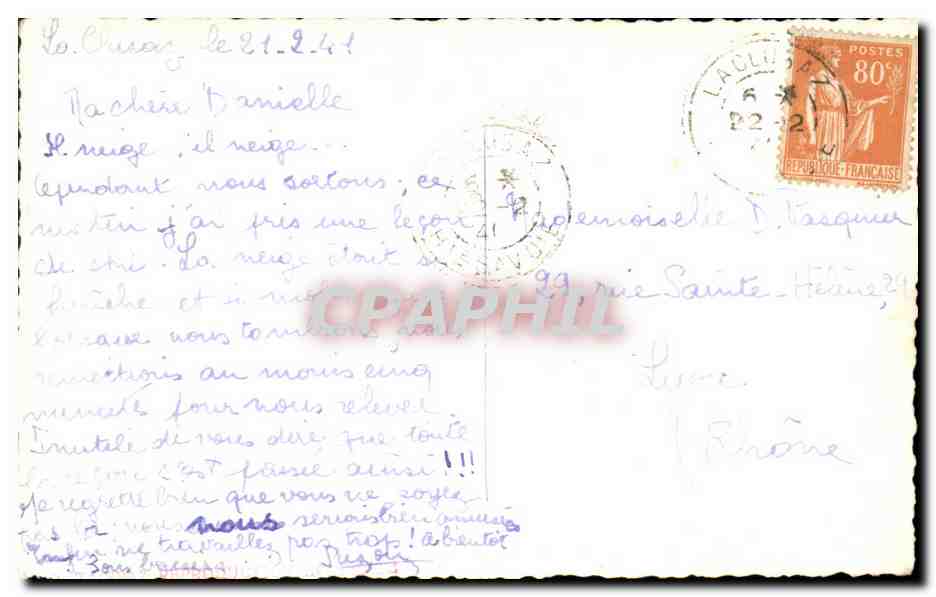 La Clusaz le 21-2-41
Ma chère Danielle
Il neige, il neige...
Cependant nous sortons, ce
matin j'ai pris une leçon
de ski. La neige était si
fraîche et si
nous tombions, nous
mettions au moins cinq
minutes pour nous relever.
Inutile de vous dire que toute
la leçon s'est passée ainsi!!!
Je regrette bien que vous ne soyez
pas là, nous nous serions bien amusés
Enfin ne travaillez pas trop! à bientôt
Bons baisers Suzon
Mademoiselle D. Pasquier
29, rue Sainte-Hélène, 29
Lyon
Rhône
LA CLUSAZ
22-2
POSTES
80c
REPUBLIQUE FRANÇAISE
LA CLUSAZ
41
HAUTE SAVOIE
CPAPHIL